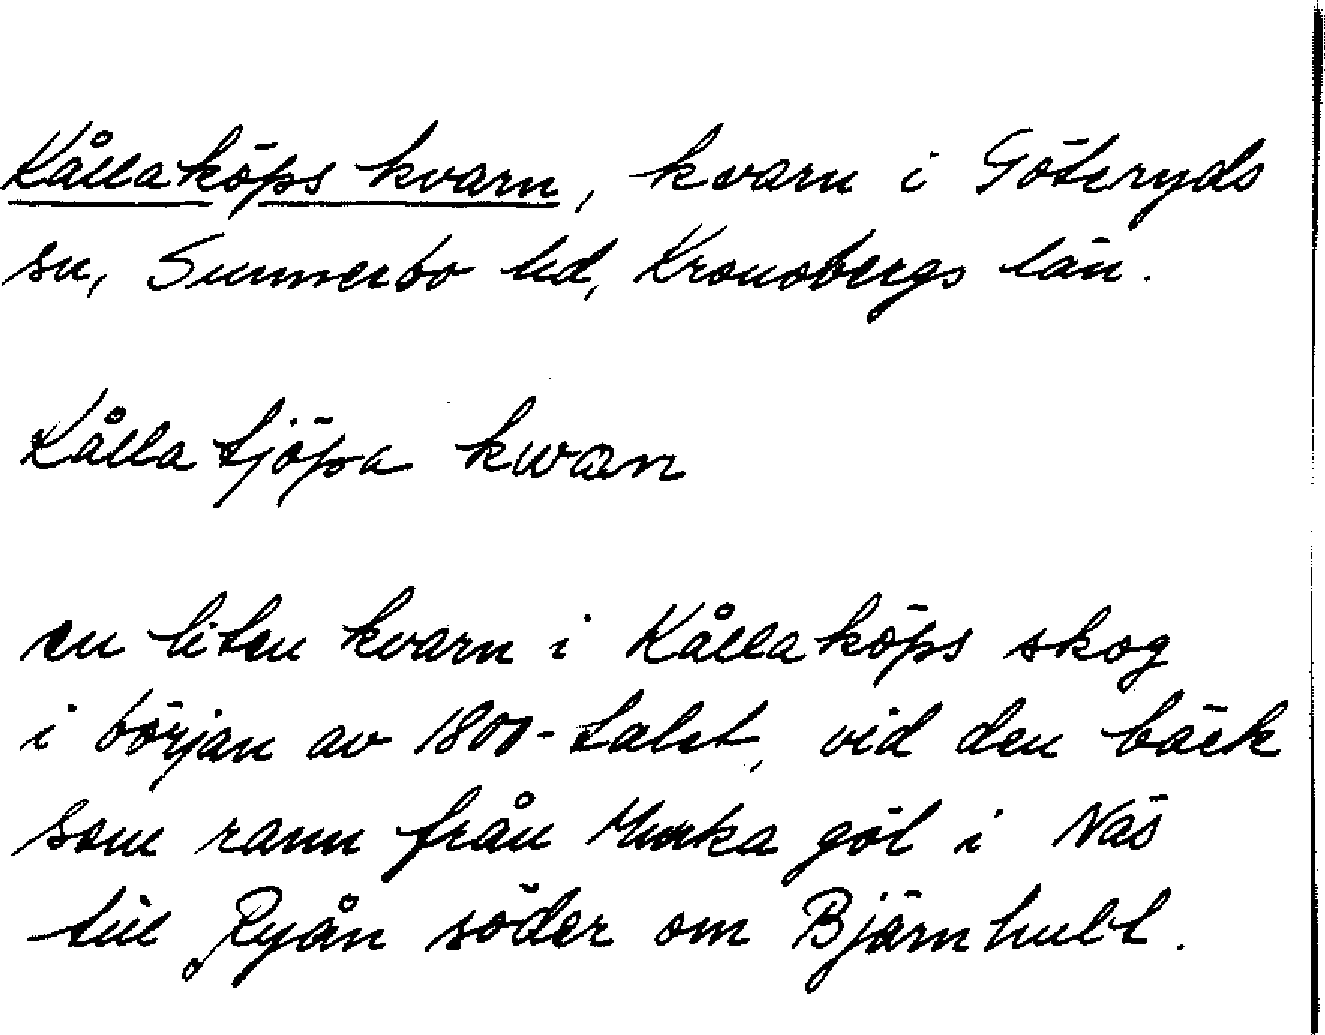 Kållaköps kvarn, kvarn i Göteryds
sn, Sunnerbo hd, Kronobergs län.
Kålla tjöpa kwan
en liten kvarn i Kållaköps skog
i början av 1800-talet, vid den bäck
som rann från göl i Näs
till Ryån söder om Bjärnhult.